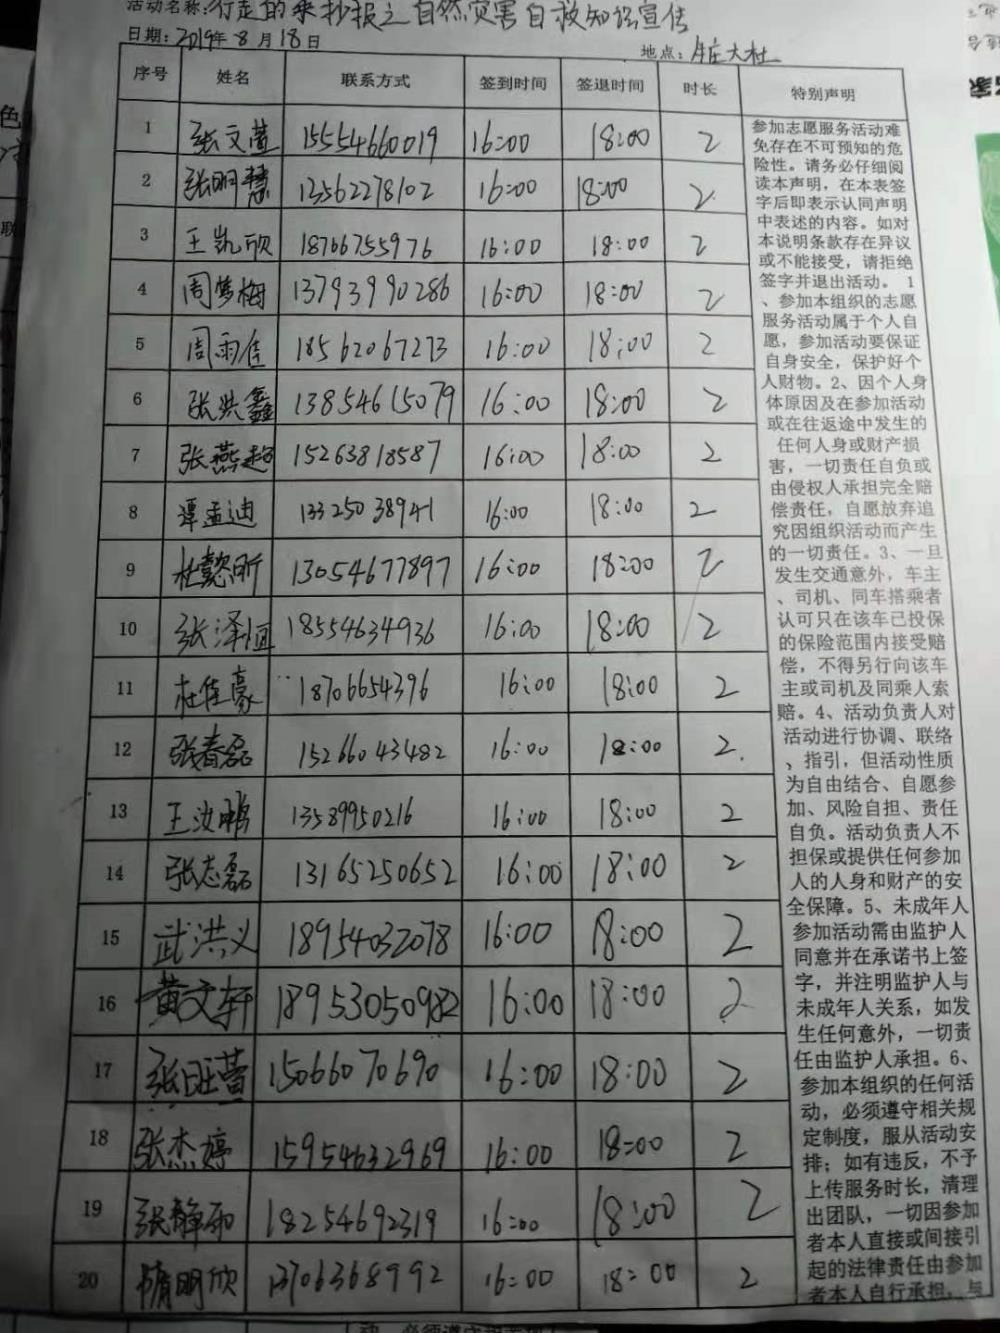 活动名称:行走的手抄报之自然灾害自救知识宣传
日期: 2019年8月18日 地点:牛庄大杜
序号 姓名 联系方式 签到时间 签退时间 时长 特别声明
1 张文萱 15554660019 16:00 18:00 2
2 张明慧 13562278102 16:00 18:00 2
3 王凯欣 18766755976 16:00 18:00 2
4 周梦梅 13793990286 16:00 18:00 2
5 周雨佳 18562067273 16:00 18:00 2
6 张洪鑫 13854615079 16:00 18:00 2
7 张燕超 15263818587 16:00 18:00 2
8 谭孟迪 13325038941 16:00 18:00 2
9 杜懿昕 13054677897 16:00 18:00 2
10 张泽恒 18554634936 16:00 18:00 2
11 杜佳豪 18706654396 16:00 18:00 2
12 张春磊 15266043482 16:00 18:00 2
13 王汝鹏 13589950216 16:00 18:00 2
14 张志磊 13165250652 16:00 18:00 2
15 武洪义 18954032078 16:00 18:00 2
16 黄文轩 18953050982 16:00 18:00 2
17 张旺蕾 15066070690 16:00 18:00 2
18 张杰婷 15954632969 16:00 18:00 2
19 张静雨 18254692319 16:00 18:00 2
20 隋明欣 13706368992 16:00 18:00 2
参加志愿服务活动难
免存在不可预知的危
险性。请务必仔细阅
读本声明，在本表签
字后即表示认同声明
中表述的内容。如对
本说明条款存在异议
或不能接受，请拒绝
签字并退出活动。 1
、参加本组织的志愿
服务活动属于个人自
愿，参加活动要保证
自身安全，保护好个
人财物。2、因个人身
体原因及在参加活动
或在往返途中发生的
任何人身或财产损
害，一切责任自负或
由侵权人承担完全赔
偿责任，自愿放弃追
究因组织活动而产生
的一切责任。3、一旦
发生交通意外，车主
、司机、同车搭乘者
认可只在该车已投保
的保险范围内接受赔
偿，不得另行向该车
主或司机及同乘人索
赔。4、活动负责人对
活动进行协调、联络
、指引，但活动性质
为自由结合、自愿参
加、风险自担、责任
自负。活动负责人不
担保或提供任何参加
人的人身和财产的安
全保障。5、未成年人
参加活动需由监护人
同意并在承诺书上签
字，并注明监护人与
未成年人关系，如发
生任何意外，一切责
任由监护人承担。6、
参加本组织的任何活
动，必须遵守相关规
定制度，服从活动安
排；如有违反，不予
上传服务时长，清理
出团队，一切因参加
者本人直接或间接引
起的法律责任由参加
者本人自行承担，与